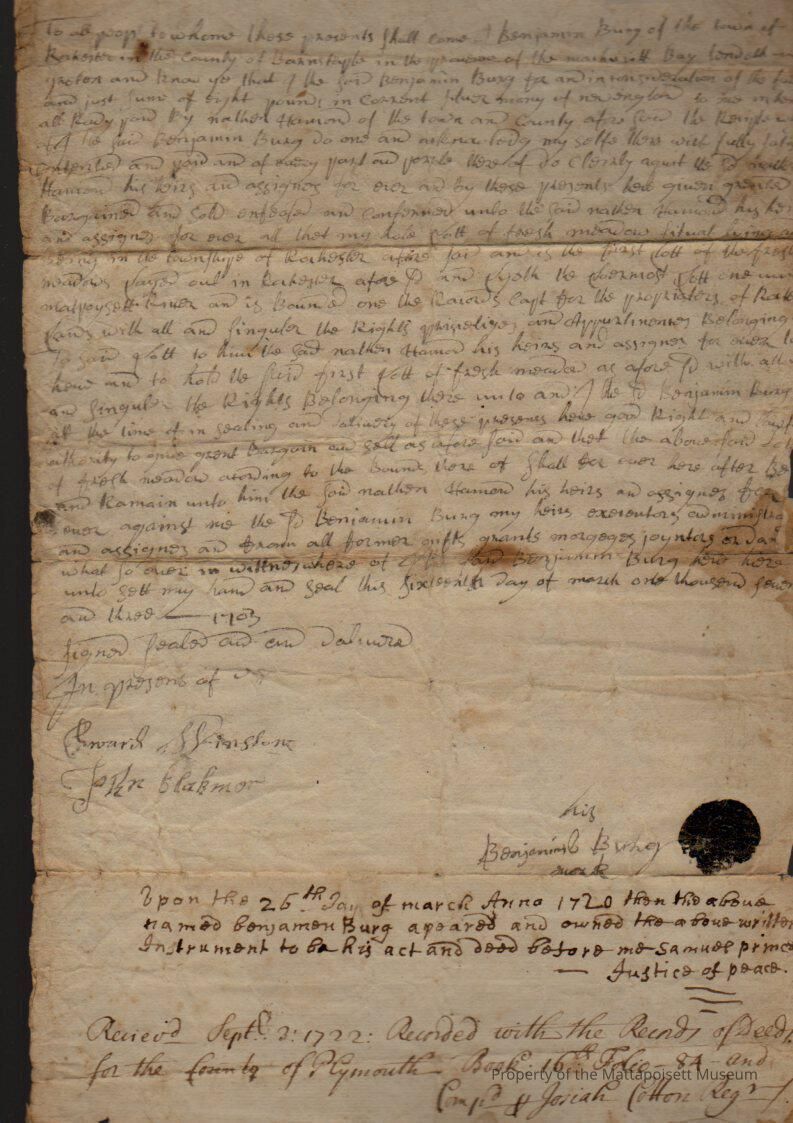 To all peopl to whome these presents shall come I Benjamin Burg of the town of
Rochester in the County of Barnstaple in the province of the Bay sendeth
greeten and know ye that I the said Benjamin Burg for and in consideration of the full
and just sume of eight pounds in Corrent silver mony of new england to me in
all Redy paid by nathen Hamon of the town and County afore said the
of I the said Benjamin Burg do one and acknowledg my selfe there with fully
and paid and of every part and there of do Clearly aquit the sd nath
Hamon his heirs and assignes for ever and by these presents have given granted
Bargained and sold enfeofed and confermed unto the said nathen Hamond his hei
and assignes for ever all that my hole lott of fresh meadow situat lying a
being in the townshipe of Rochester afore said and is the first lott of the fresh
meadows layed out in Rochester afore sd and lyeth the lott one
matpoysett River and is Bound one the Racords capt for the propriators of Roch
lands with all and singuler the Rights priveliges and Appurtinences Belonging
To said lott to him the said nathen Hamon his heirs and assignes for ever to
have and to hold the said first lott of fresh meadow as afore sd with all
and singuler the Rights Belonging there unto and I the sd Benjamin Burg
at the time of in sealing and delivery of these presents have good Right and lawf
authority to give grent bargain and sell as afore said and that the above said lott
of fresh meadow acording to the Bounds there of shall for ever here after Be
and Ramain unto him the said nathen Hamond his heirs and assignes
ever against me the sd Benjamin Burg my heirs executors administra
and assignes and from all former gifts grants morgeges joynters or
what so ever in wittnes where of I the said Benjamin Burg have here
unto sett my hand and seal this sixteenth day of march one thousand seven
and three — 1703
signed sealed and and Daliverd
In presens of us
Edward Winslow
John blakmor
his
Benjamin B Burg
mark
Upon the 26th Day of march Anno 1720 then the above
named benjamen Burg apeared and owned the above written
Instrument to be his act and deed before me Samuel prince
— Justice of peace.
Reciev'd Sept. 3: 1722: Recorded with the Records of Deeds
for the County of Plymouth Book 16th Folio - 84 - and
Comp'd p Josiah Cotton Regr
Property of the Mattapoisett Museum